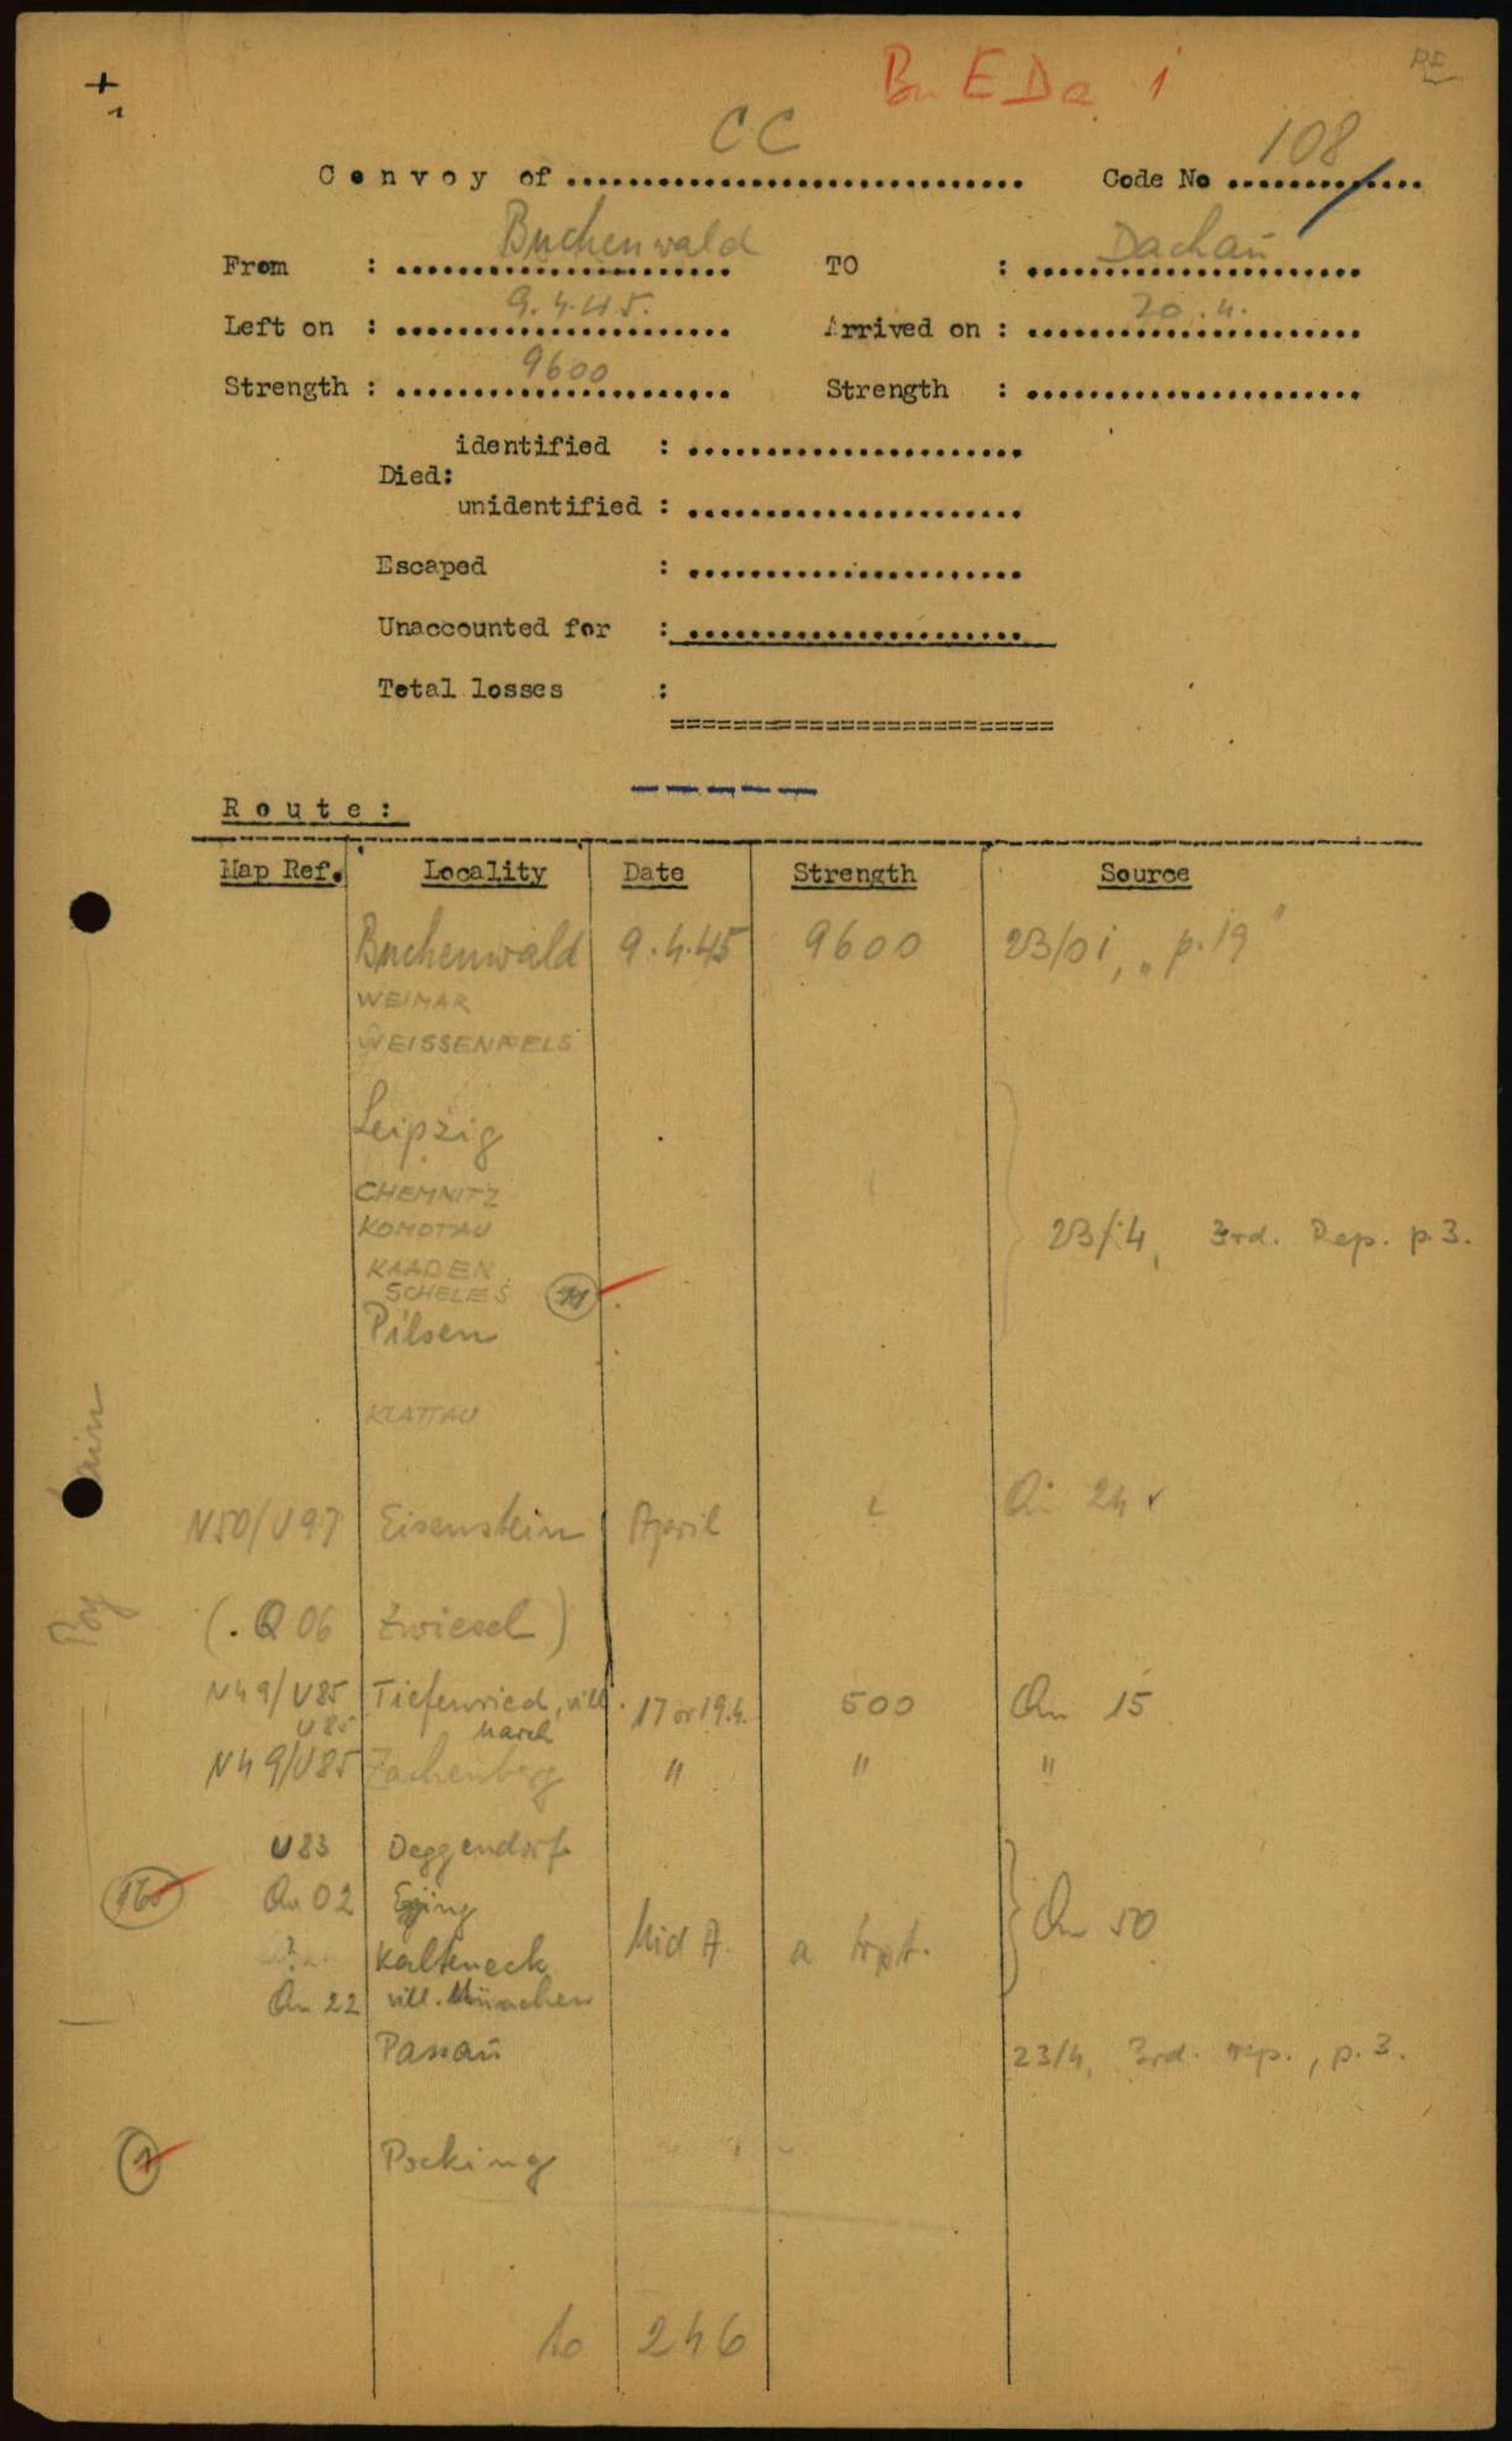 Bu E Da 1
+
1
CC
108
Convoy of .............................. Code No .............
Buchenwald Dachau
From : ...................... TO : ......................
9.4.45. 20.4.
Left on : ...................... Arrived on : ......................
9600
Strength : ...................... Strength : ......................
identified : ......................
Died:
unidentified : ......................
Escaped : ......................
Unaccounted for : ......................
Total losses :
=========================
Route:
Map Ref. Locality Date Strength Source
Buchenwald 9.4.45 9600 23/01, p.19
WEIMAR
WEISSENFELS
Leipzig
CHEMNITZ
KOMOTAU
23/4, 3rd. Rep. p 3.
KAADEN
SCHELES
Pilsen
KLATTAU
N50/U97 Eisenstein April 24
(. Q 06 Zwiesel)
N49/U85 Tiefenried, vill. 17 or 19.4. 500 15
U85 March
N49/U85 Zachenberg " " "
U83 Deggendorf
02 Eging
50
Kalteneck Mid A. a trpt.
22 vill. München
Passau 23/4, 3rd. rep., p. 3.
Pocking
to 246